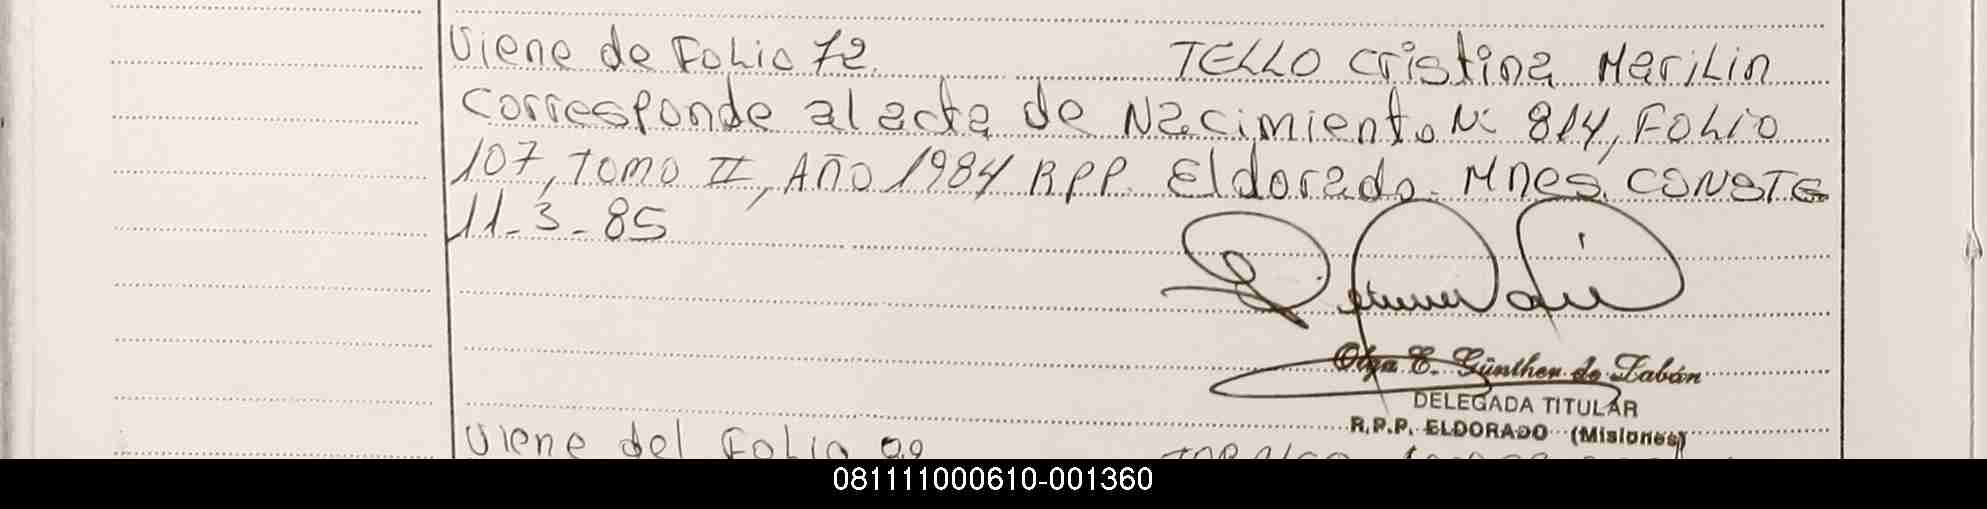 Viene de Folio 72. TELLO Cristina Marilin
Corresponde al acta de Nacimiento Nº 814, Folio
107, TOMO II, AÑO 1984 R.P.P. Eldorado. Mnes. CONSTE
11-3-85
Olga E. Günther de Zabán
DELEGADA TITULAR
R.P.P. ELDORADO (Misiones)
Viene del Folio
081111000610-001360